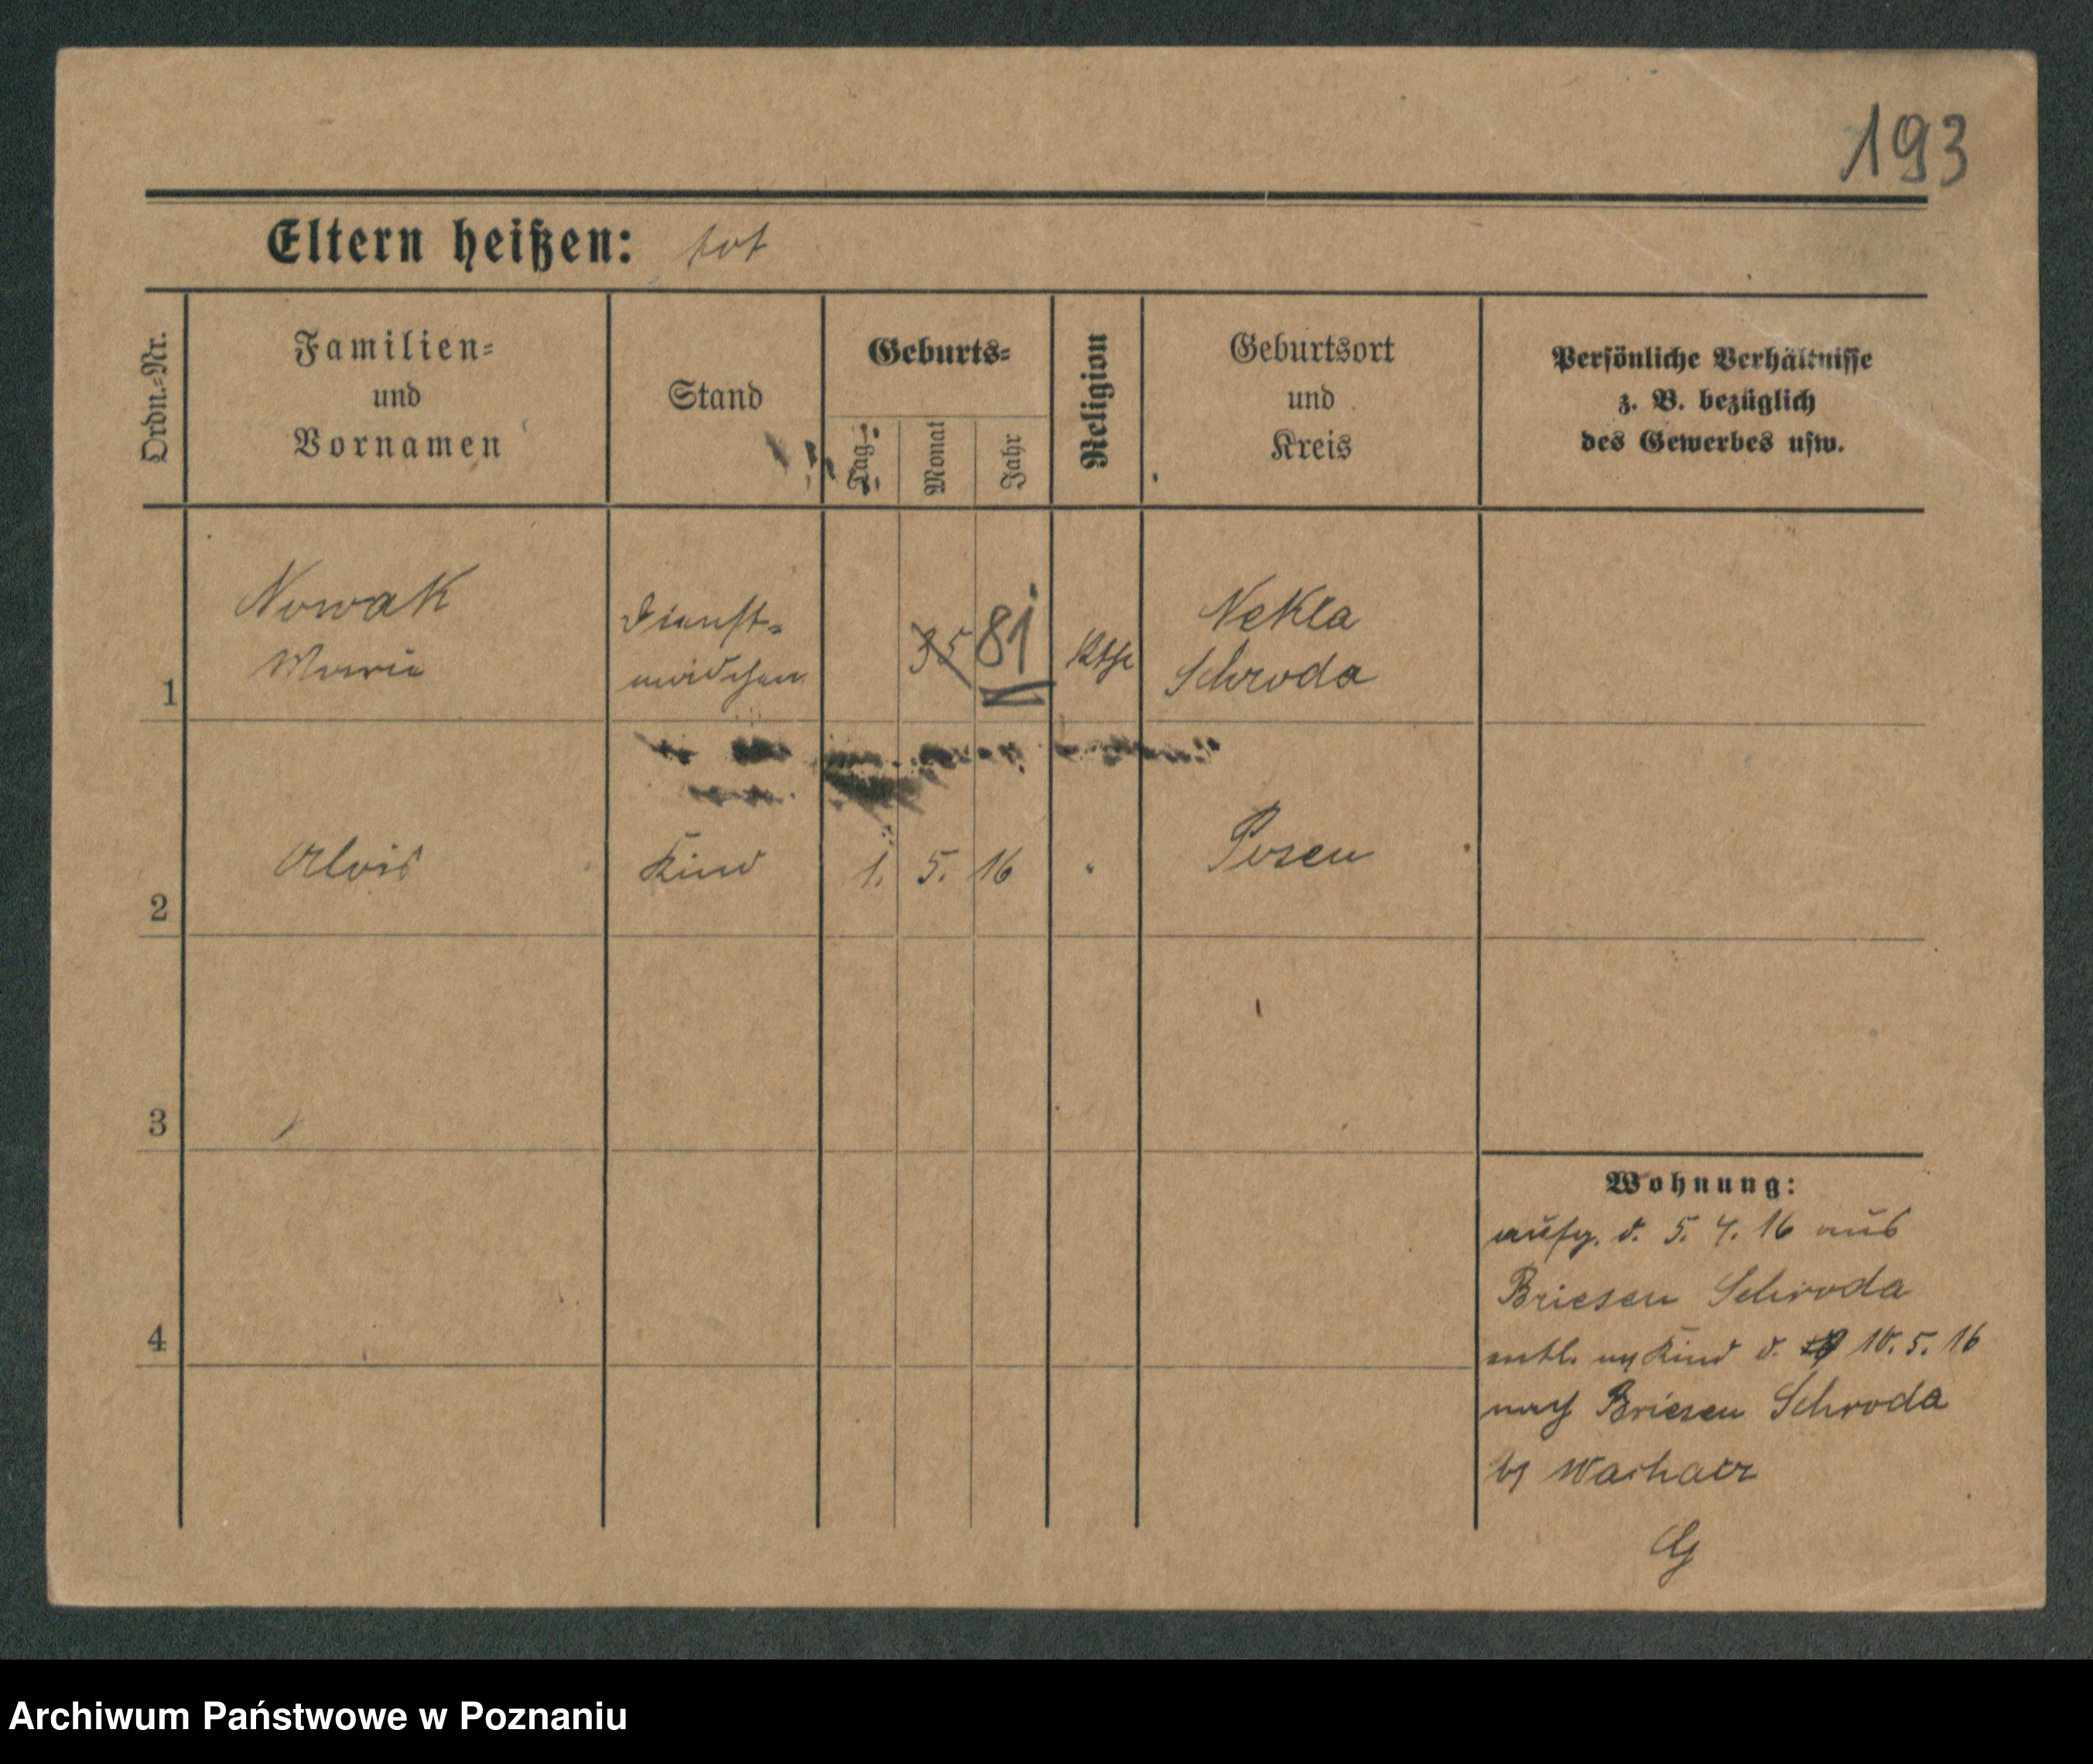 193
Eltern heißen: tot
Ordn.-Nr.
Familien-
und
Vornamen
Stand
Geburts-
Tag
Monat
Jahr
Religion
Geburtsort
und
Kreis
Persönliche Verhältnisse
z. B. bezüglich
des Gewerbes usw.
1
Nowak
Marie
Dienst-
mädchen
35
81
Kth
Nekla
Schroda
2
Alois
Kind
1. 5. 16
"
Posen
3
4
Wohnung:
aufg. d. 5. 4. 16 aus
Briesen Schroda
entl. Kind d. 10. 5. 16
nach Briesen Schroda
Archiwum Państwowe w Poznaniu